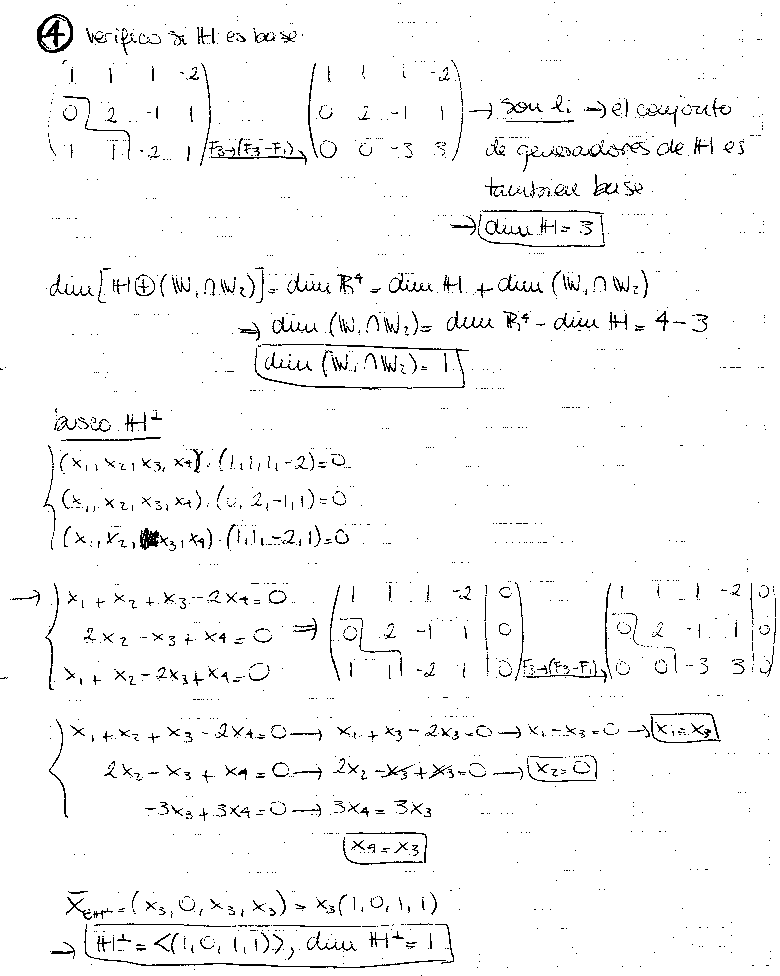 ④ Verifico si ℍ es base.
( 1 1 1 -2 ) ( 1 1 1 -2 )
( 0 2 -1 1 ) ( 0 2 -1 1 ) → son li → el conjunto
( 1 1 -2 1 ) F3→(F3-F1) ( 0 0 -3 3 ) de generadores de ℍ es
también base.
→ dim ℍ = 3
dim[ℍ⊕(𝕎₁∩𝕎₂)] = dim ℝ⁴ = dim ℍ + dim (𝕎₁∩𝕎₂)
→ dim (𝕎₁∩𝕎₂) = dim ℝ⁴ - dim ℍ = 4-3
dim (𝕎₁∩𝕎₂) = 1
busco ℍ⊥
(x₁,x₂,x₃,x₄).(1,1,1,-2)=0
(x₁,x₂,x₃,x₄).(0,2,-1,1)=0
(x₁,x₂,x₃,x₄).(1,1,-2,1)=0
→ { x₁+x₂+x₃-2x₄=0 ( 1 1 1 -2 | 0 ) ( 1 1 1 -2 | 0 )
2x₂-x₃+x₄=0 ⇒ ( 0 2 -1 1 | 0 ) ( 0 2 -1 1 | 0 )
x₁+x₂-2x₃+x₄=0 ( 1 1 -2 1 | 0 ) F3→(F3-F1) ( 0 0 -3 3 | 0 )
x₁+x₂+x₃-2x₄=0 → x₁+x₃-2x₃=0 → x₁-x₃=0 → x₁=x₃
2x₂-x₃+x₄=0 → 2x₂-x₃+x₃=0 → x₂=0
-3x₃+3x₄=0 → 3x₄=3x₃
x₄=x₃
X̄∈ℍ⊥=(x₃,0,x₃,x₃)=x₃(1,0,1,1)
→ ℍ⊥=<(1,0,1,1)>, dim ℍ⊥=1